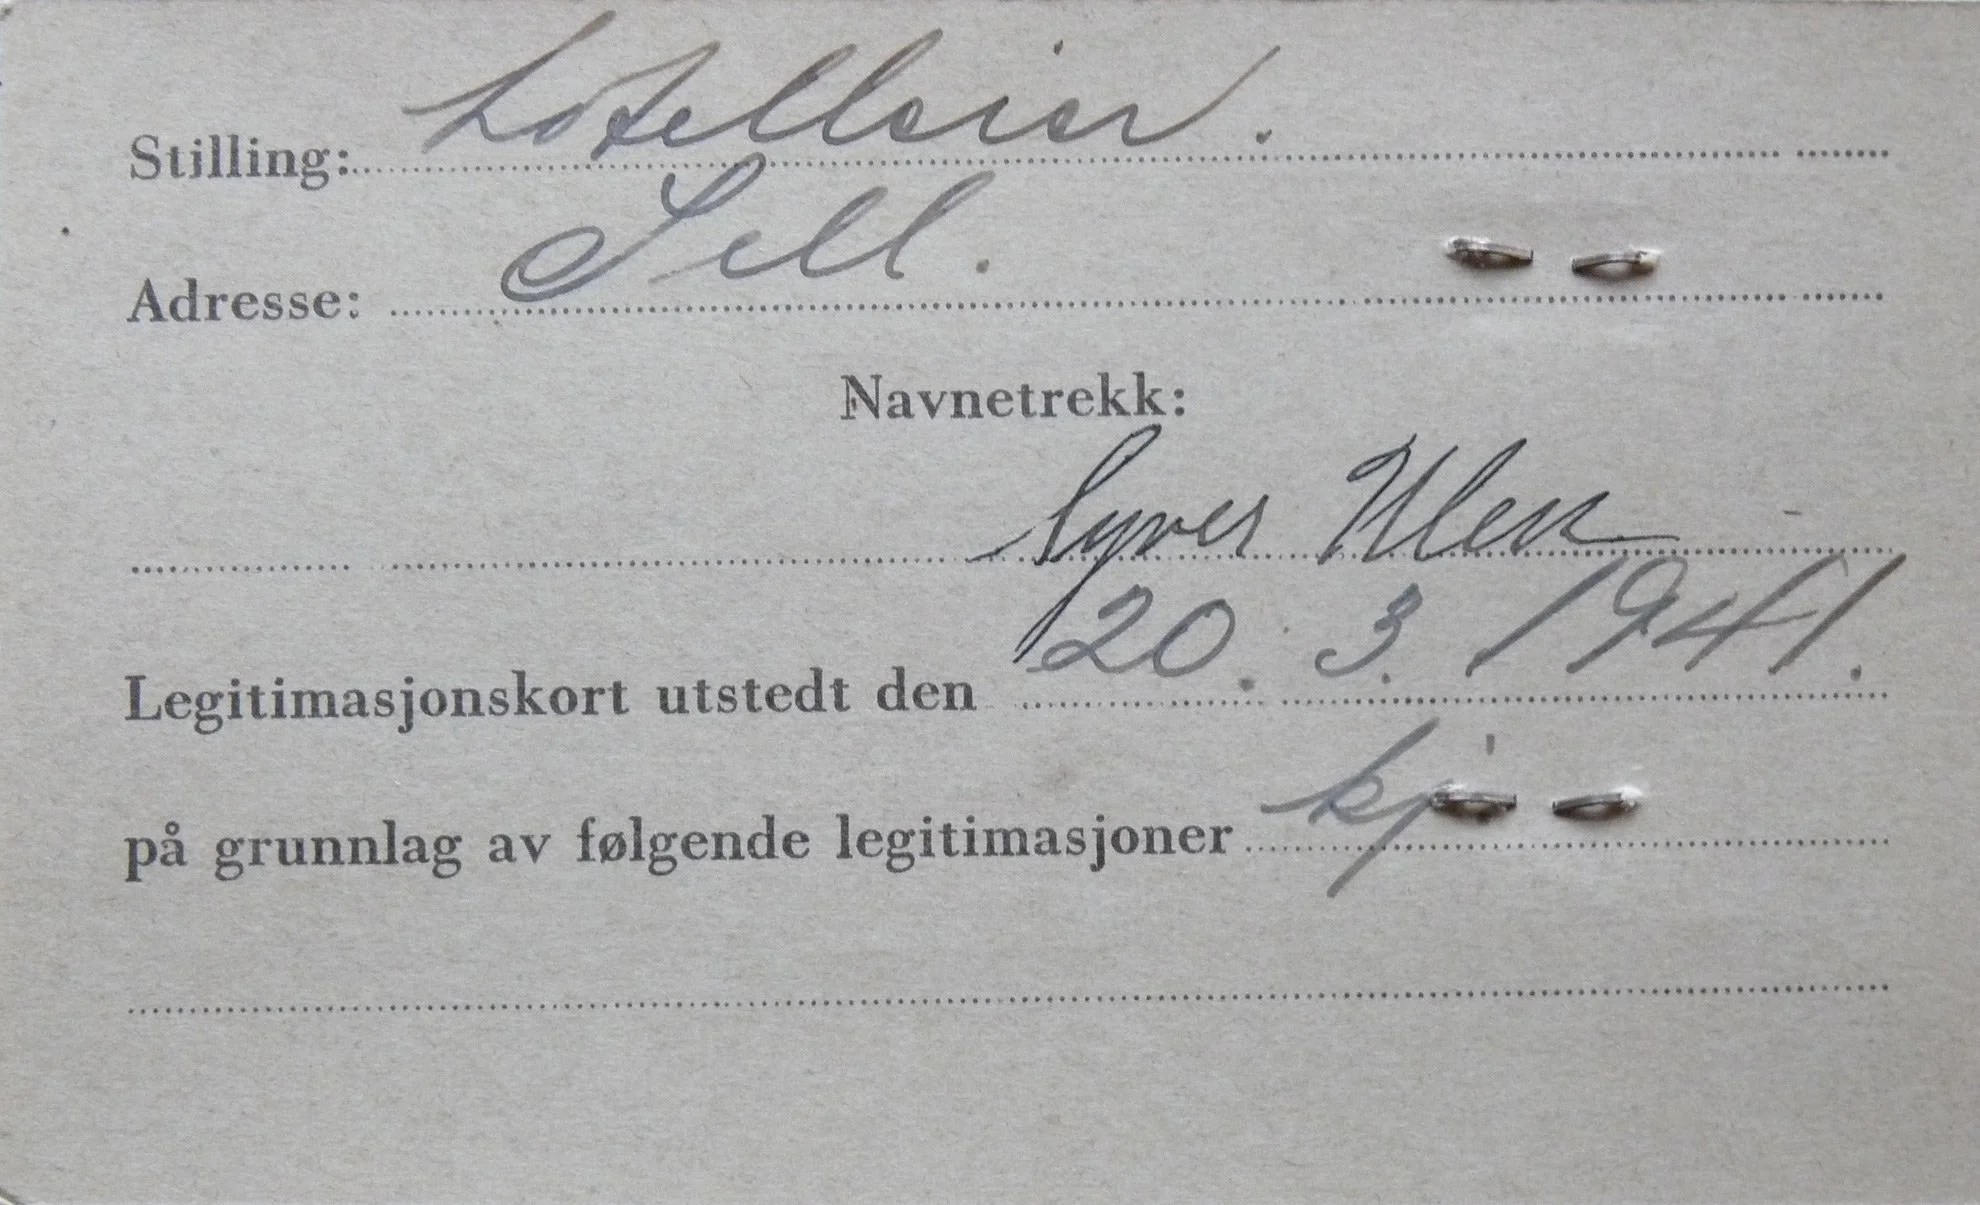 Stilling: hotelleier.
Adresse: Sell.
Navnetrekk:
Syver Ulen
Legitimasjonskort utstedt den 20. 3. 1941.
på grunnlag av følgende legitimasjoner kj